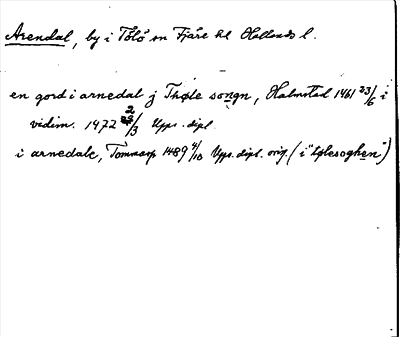 Arendal, by i Tölö sn Fjäre hd Hallands l.
en gord i arnedal j Thøle songn, Halmstad 1461 23/6 i
vidim. 1472 2/3 Upps. dipl.
i arnedale, Tommarp 1489 4/10 Upps. dipl. orig. (i "tølesoghen")